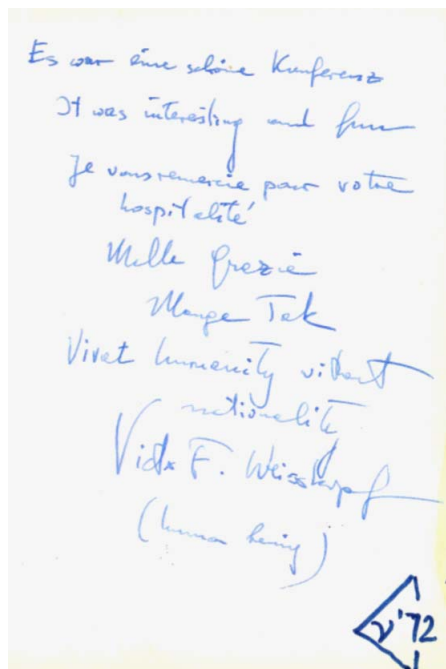 Es war eine schöne Konferenz
It was interesting and fun
Je vous remercie pour votre
hospitalité
Mille grazie
Mange Tak
Vivat humanity
nationality
Victor F. Weisskopf
(human being)
ν'72